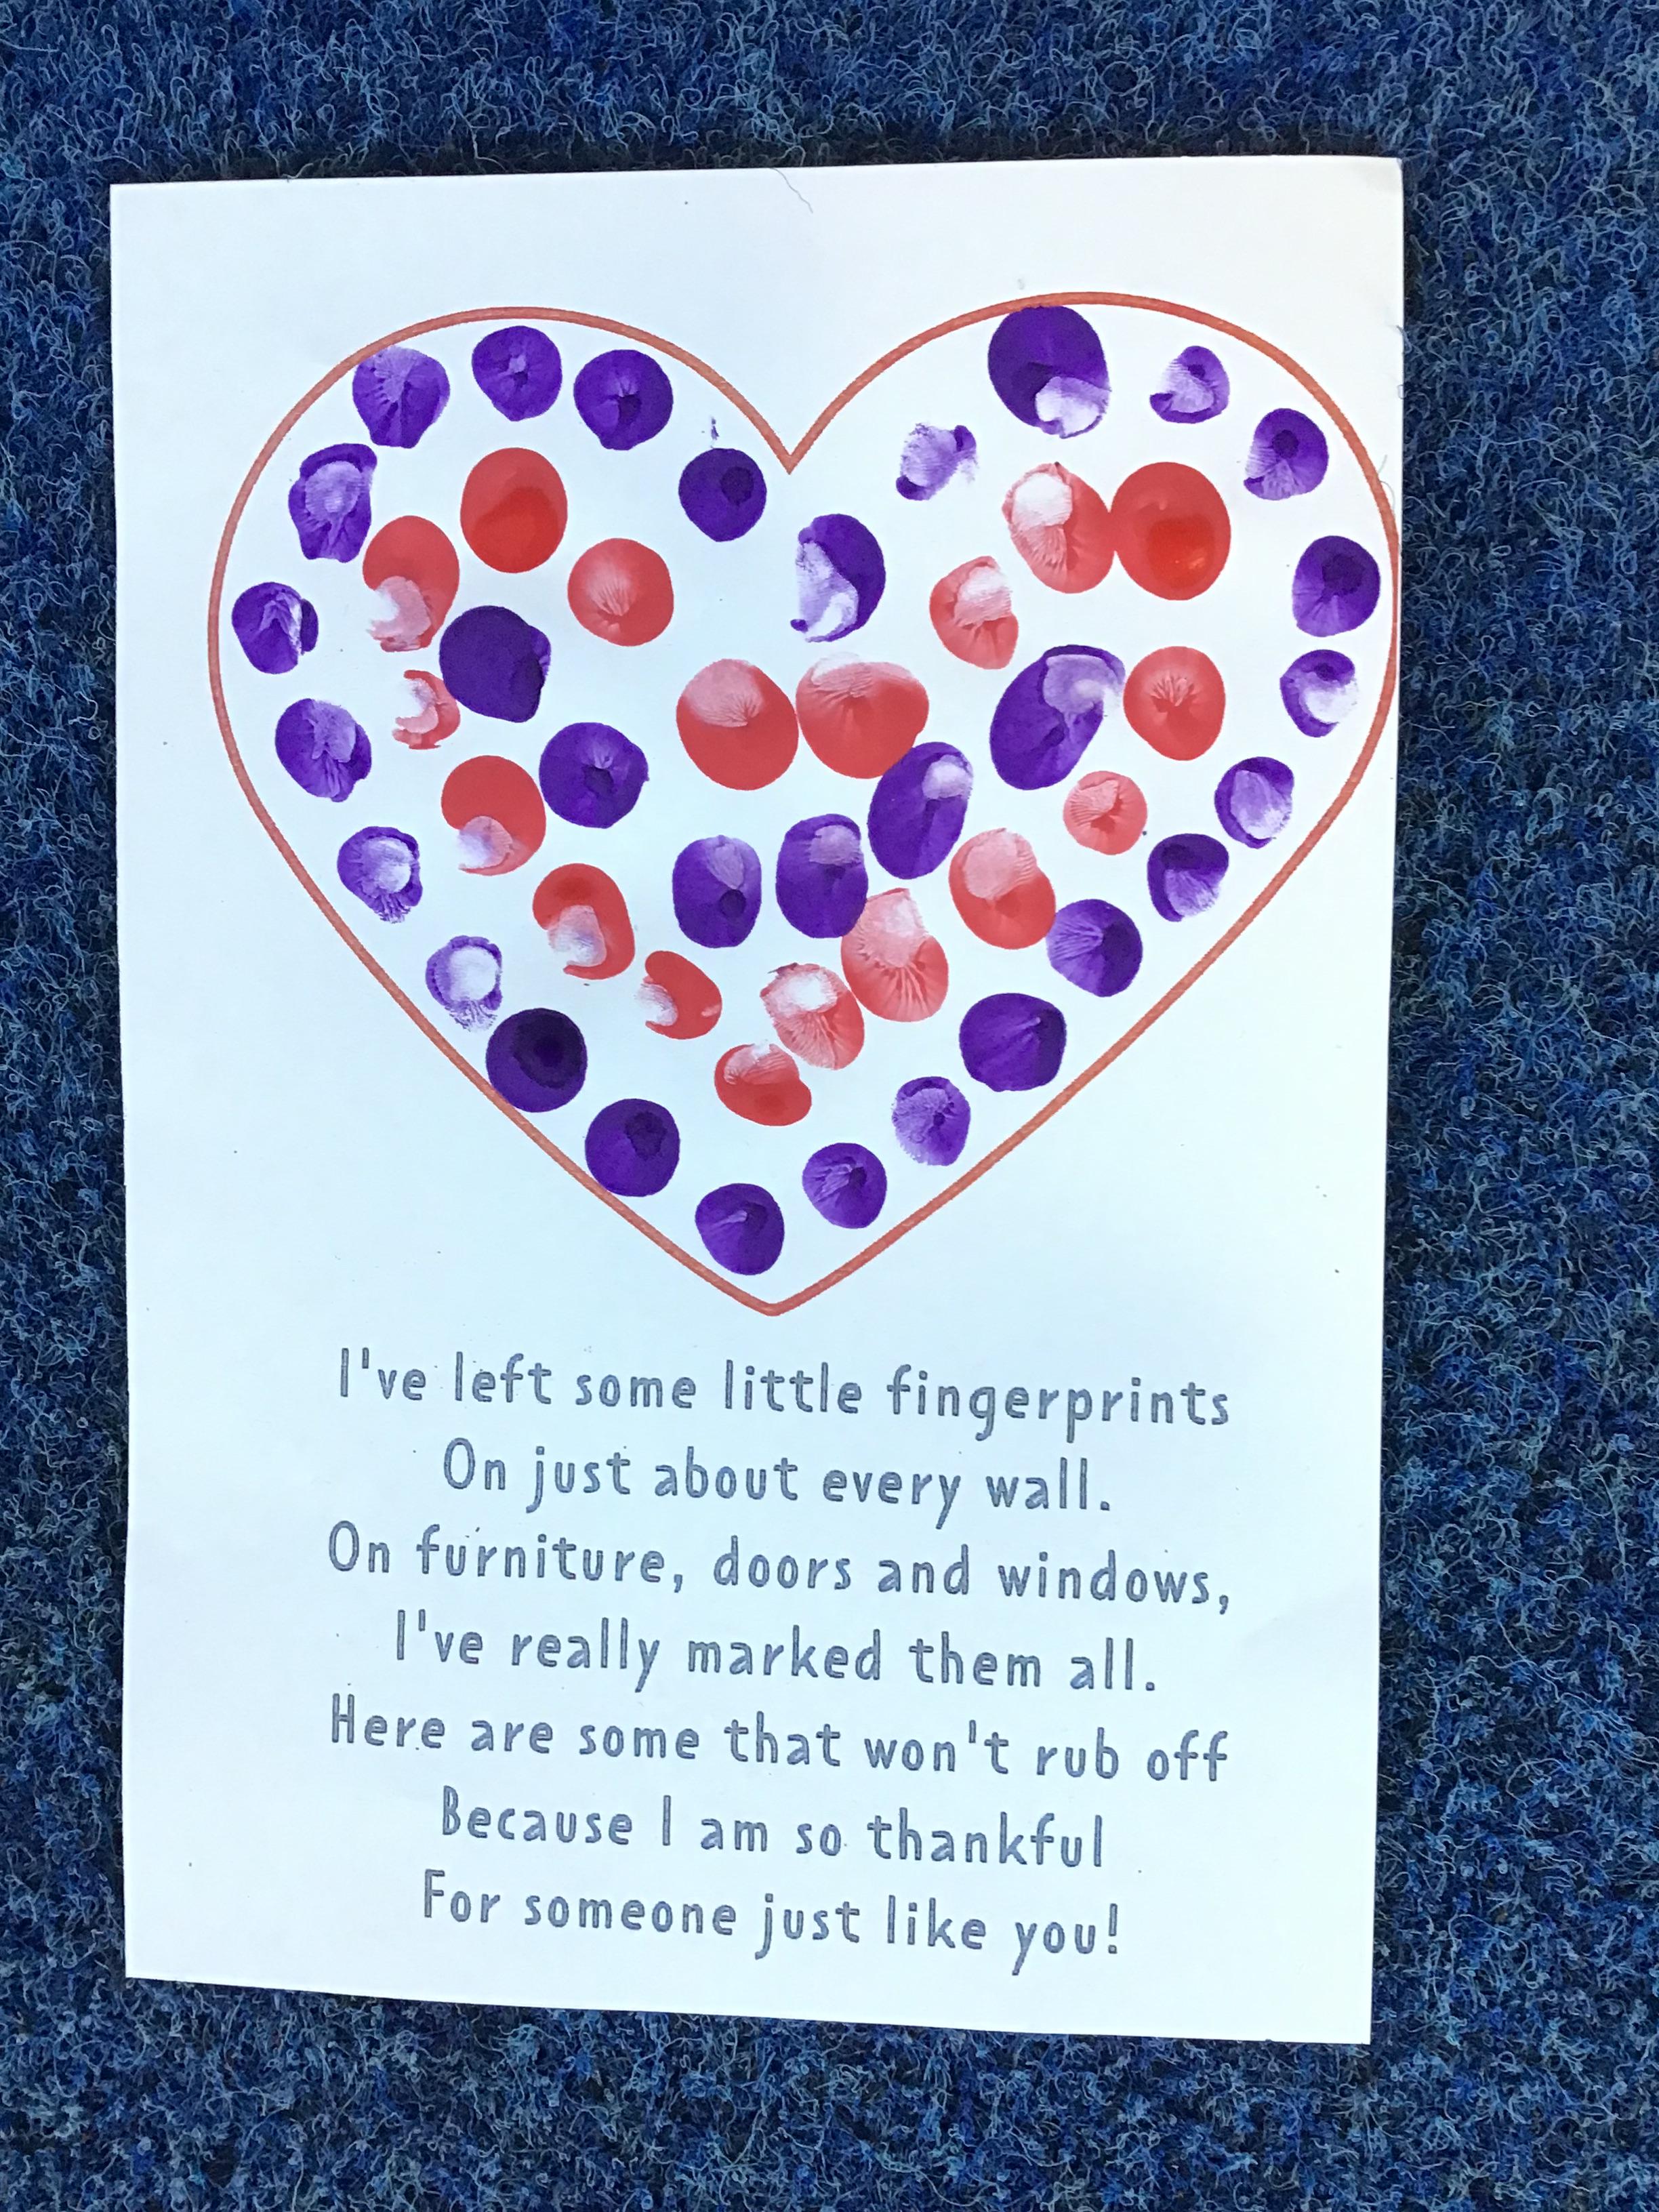 I've left some little fingerprints
On just about every wall.
On furniture, doors and windows,
I've really marked them all.
Here are some that won't rub off
Because I am so thankful
For someone just like you!